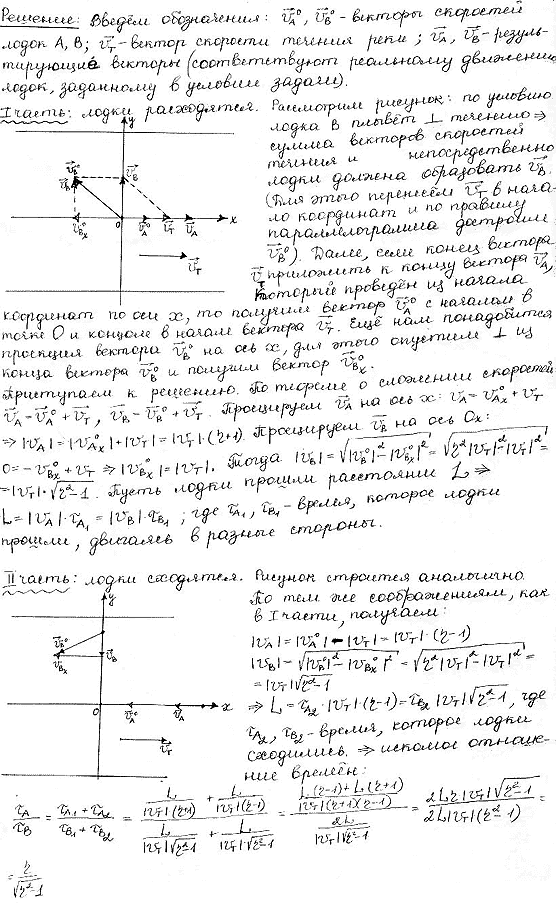 Решение: Введём обозначения: v⃗_A°, v⃗_B° - векторы скоростей
лодок A, B; v⃗_T - вектор скорости течения реки; v⃗_A, v⃗_B - резуль-
тирующие векторы (соответствуют реальному движению
лодок, заданному в условии задачи).
I часть: лодки расходятся. Рассмотрим рисунок: по условию
лодка B плывёт ⊥ течению ⇒
сумма векторов скоростей
течения и непосредственно
лодки должна образовать v⃗_B.
(Для этого перенесём v⃗_T в нача-
ло координат и по правилу
параллелограмма достроим
v⃗_B°). Далее, если конец вектора
v⃗_T приложить к концу вектора v⃗_A,
который проведён из начала
y
v⃗_B° v⃗_B
v⃗_Bx° 0 v⃗_A° v⃗_T v⃗_A x
v⃗_T
координат по оси x, то получим вектор v⃗_A° с началом в
точке O и концом в начале вектора v⃗_T. Ещё нам понадобится
проекция вектора v⃗_B° на ось x, для этого опустим ⊥ из
конца вектора v⃗_B° и получим вектор v⃗_Bx°.
Приступаем к решению. По теореме о сложении скоростей
v⃗_A = v⃗_A° + v⃗_T, v⃗_B = v⃗_B° + v⃗_T. Проецируем v⃗_A на ось x: v_A = v_Ax° + v_T
⇒ |v_A| = |v_Ax°| + |v_T| = |v_T|·(η+1). Проецируем v⃗_B на ось Ox:
0 = -v_Bx° + v_T ⇒ |v_Bx°| = |v_T|. Тогда |v_B| = √(|v_B°|² - |v_Bx°|²) = √(η²|v_T|² - |v_T|²) =
= |v_T|·√(η²-1). Пусть лодки прошли расстояние L ⇒
L = |v_A|·τ_A1 = |v_B|·τ_B1; где τ_A1, τ_B1 - время, которое лодки
прошли, двигаясь в разные стороны.
II часть: лодки сходятся. Рисунок строится аналогично.
По тем же соображениям, как
в I части, получаем:
|v_A| = |v_A°| - |v_T| = |v_T|·(η-1)
|v_B| = √(|v_B°|² - |v_Bx°|²) = √(η²|v_T|² - |v_T|²) =
= |v_T|√(η²-1)
⇒ L = τ_A2·|v_T|·(η-1) = τ_B2|v_T|√(η²-1), где
τ_A2, τ_B2 - время, которое лодки
сходились. ⇒ искомое отноше-
ние времён:
y
v⃗_B°
v⃗_Bx° v⃗_B
0 v⃗_A° v⃗_A x
v⃗_T
τ_A/τ_B = (τ_A1 + τ_A2)/(τ_B1 + τ_B2) = (L/(|v_T|(η+1)) + L/(|v_T|(η-1)))/(L/(|v_T|√(η²-1)) + L/(|v_T|√(η²-1))) = ((L(η-1) + L(η+1))/(|v_T|(η+1)(η-1)))/(2L/(|v_T|√(η²-1))) = 2Lη|v_T|√(η²-1)/(2L|v_T|(η²-1)) =
= η/√(η²-1)